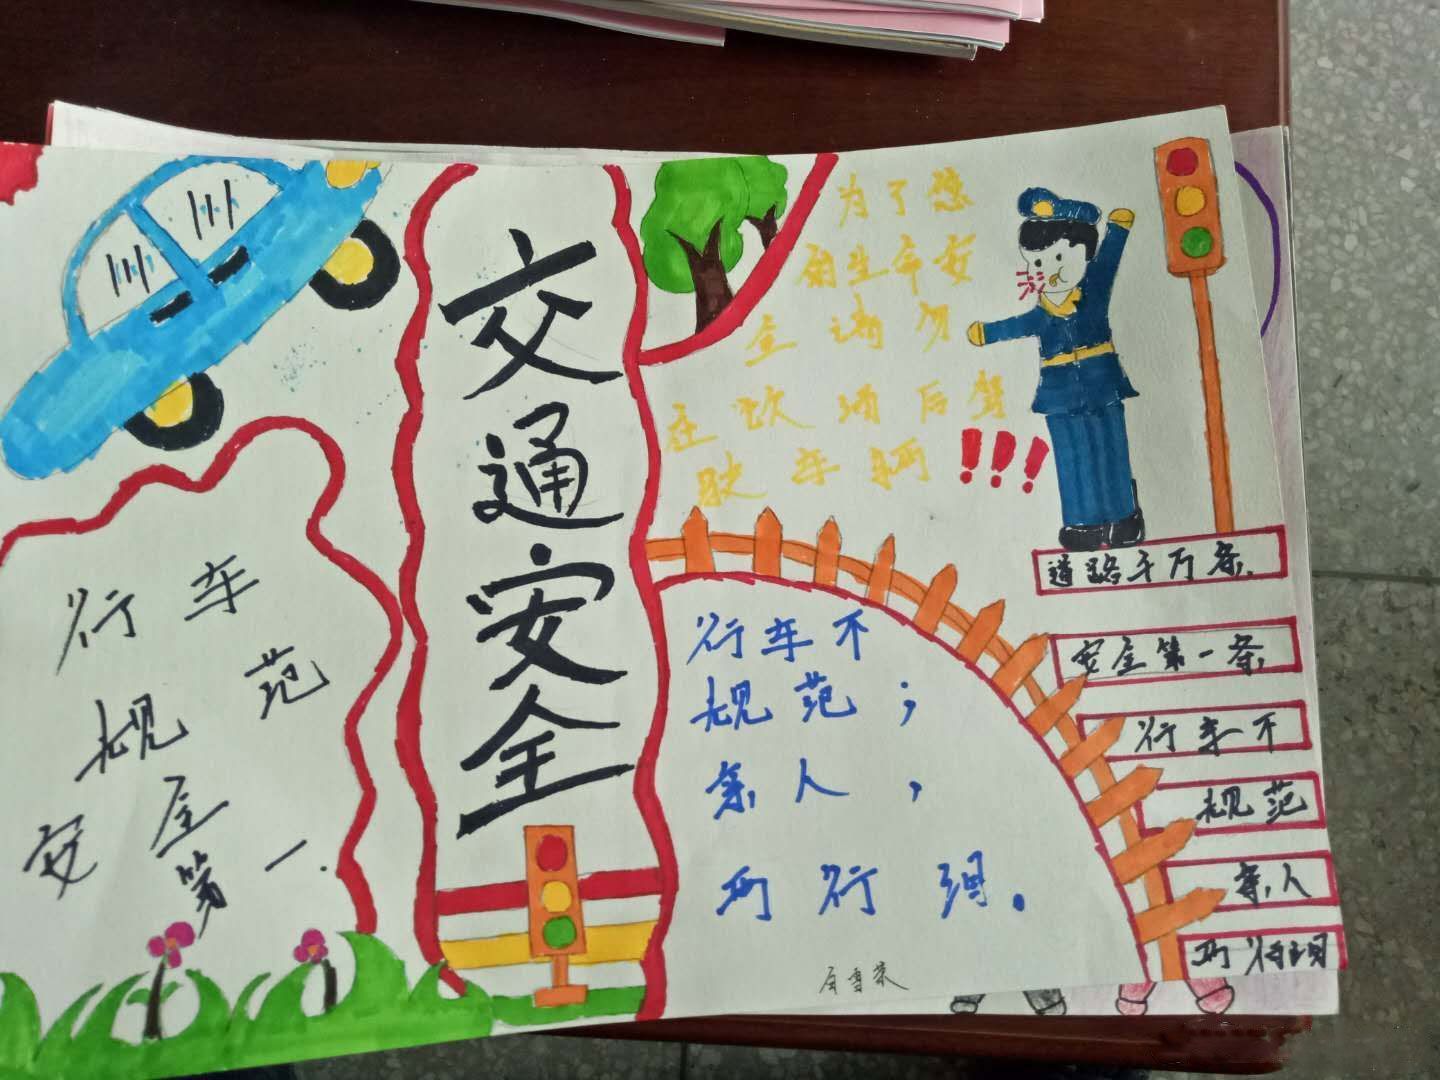 行车
规范
安全
第一.
交通安全
为了您
的生命安
全请勿
在饮酒后驾
驶车辆!!!
行车不
规范；
亲人，
两行泪。
道路千万条.
安全第一条
行车不
规范
亲人
两行泪